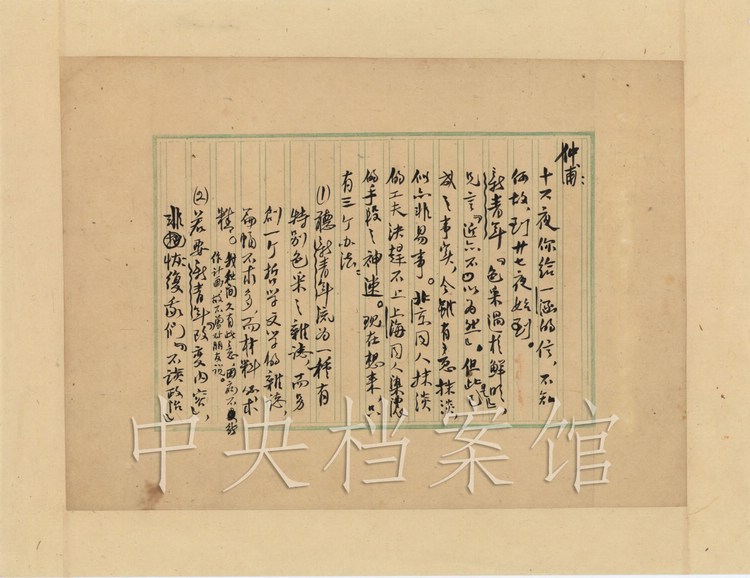 仲甫:
十六夜你给一涵的信，不知
何故到廿七夜始到。
新青年“色采过于鲜明”，
兄言“近亦不以为然”。但此已
成之事实，今虽有意抹淡
似亦非易事。北京同人抹淡
的工夫决赶不上上海同人染浓
的手段之神速。现在想来，只
有三个办法：
(1) 听新青年流为一种有
特别色采之杂志，而另
创一个哲学文学的杂志，
篇幅不求多，而材料必求
精。我秋间久有此意，因病不能
作计画，故不曾对朋友说。
(2) 若要新青年改变内容，
非恢复我们“不谈政治”
中央档案馆